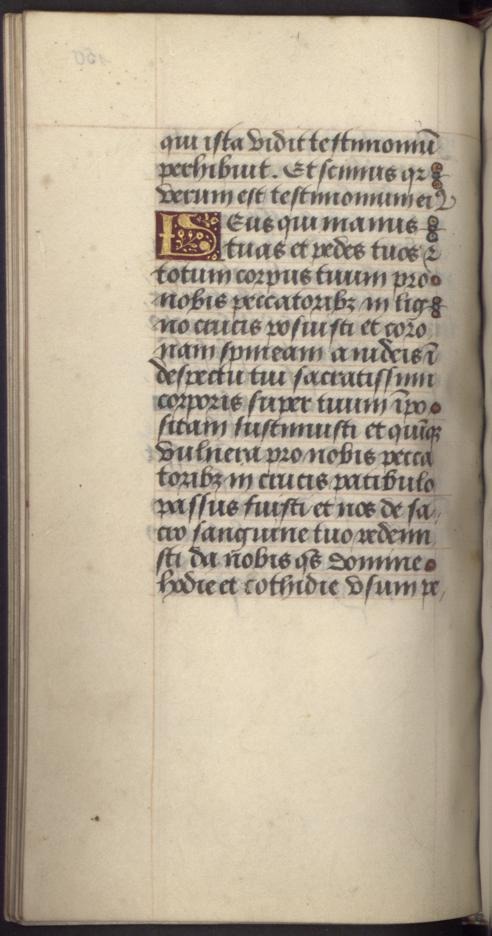 qui ista vidit testimoniū
perhibuit. Et scimus qr
verum est testimonium ei9
Deus qui manus
tuas et pedes tuos z
totum corpus tuum pro
nobis peccatoribz in lig
no crucis posuisti et coro
nam spineam a iudeis ī
despectu tui sacratissimi
corporis super tuum īpo
sitam sustinuisti et quīqz
vulnera pro nobis pecca
toribz in crucis patibulo
passus fuisti et nos de sa
cro sanguine tuo redemi
sti da nobis qs domine
hodie et cothidie vsum pe